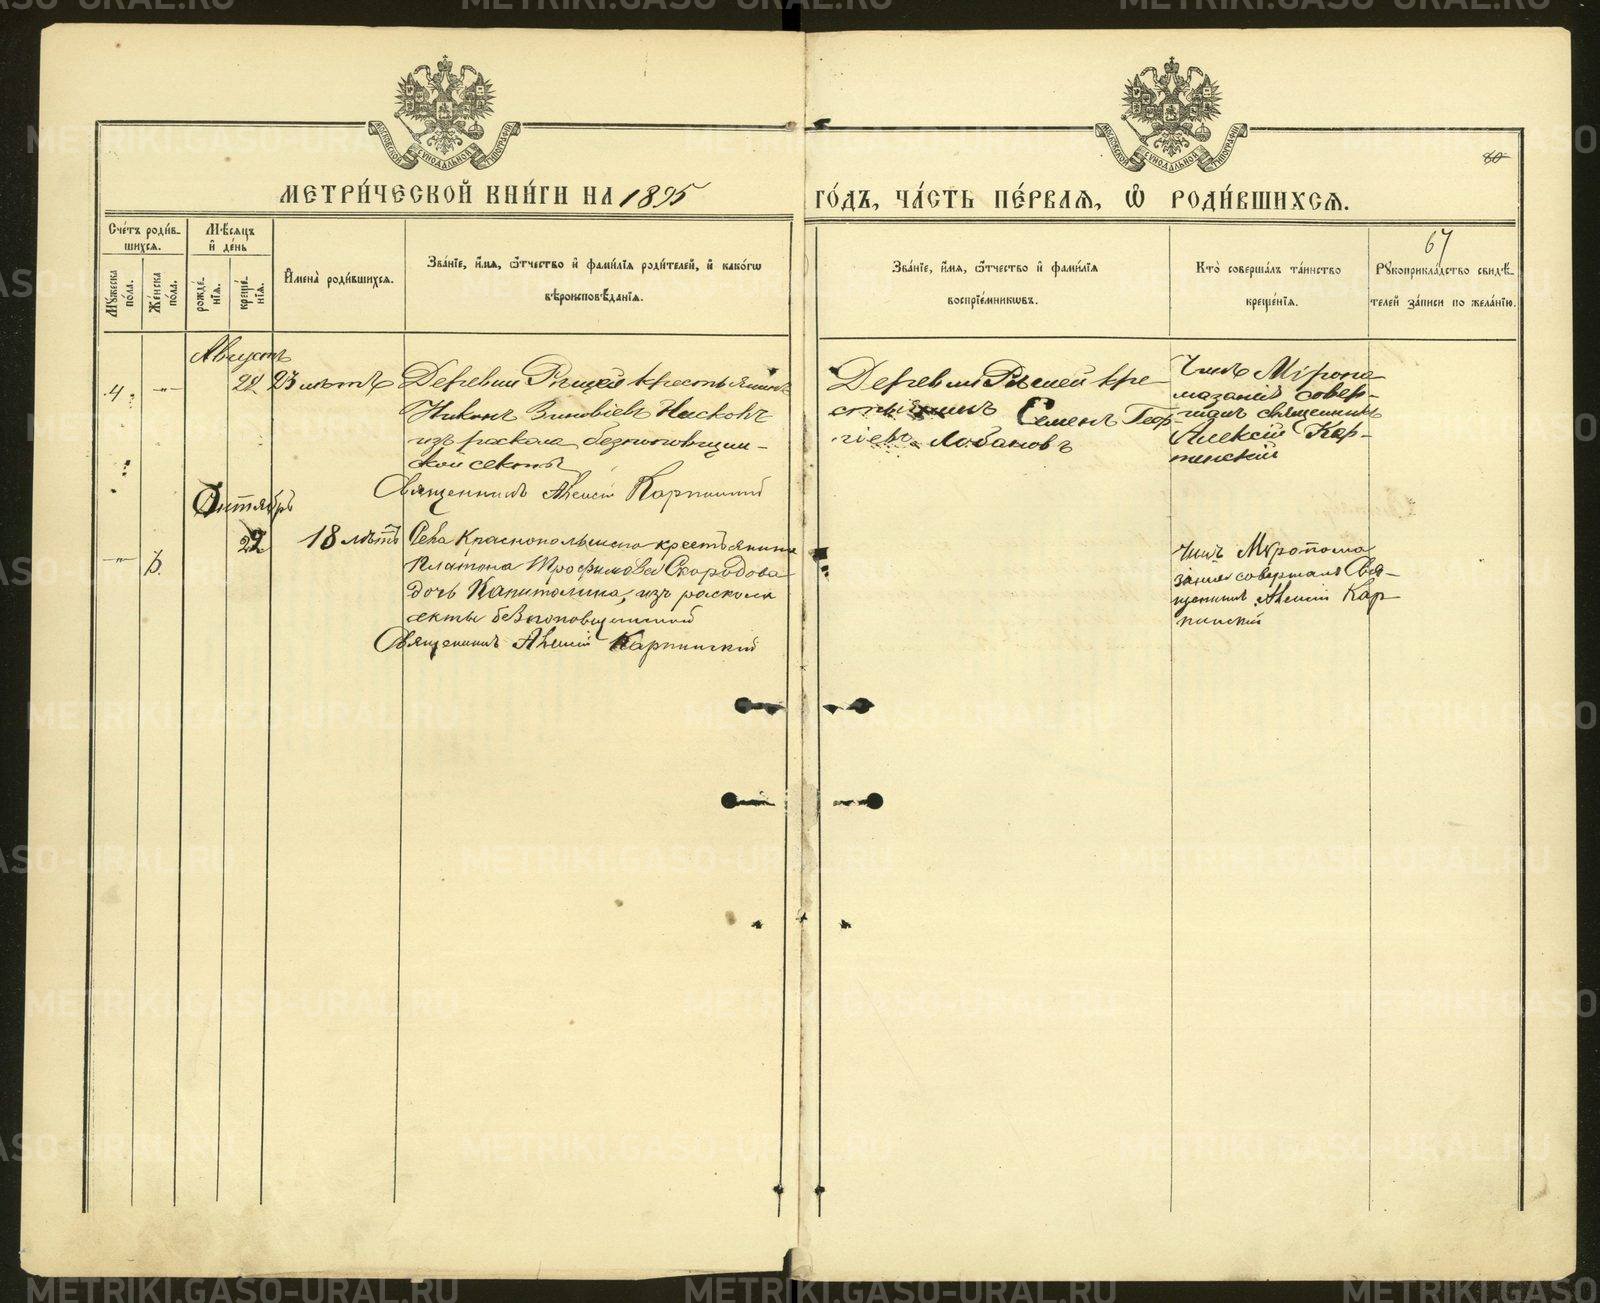 МОСКОВСКОЙ СУНОДАЛЬНОЙ ТИПОГРАФІИ
МОСКОВСКОЙ СУНОДАЛЬНОЙ ТИПОГРАФІИ
60
МЕТРИ́ЧЕСКОЙ КНИ́ГИ НА 1895
ГО́ДЪ, ЧА́СТЬ ПЕ́РВАЯ, Ѡ҆ РОДИ́ВШИХСЯ.
67
Сче́тъ роди́в-
шихся.
Мꙋжеска по́ла.
Же́нска по́ла.
Мѣ́сяцъ
и҆ де́нь
рожде́-
нїя.
креще́-
нїя.
И҆мена̀ роди́вшихся.
Зва́нїе, и҆́мя, ѻ҆́тчество и҆ фами́лїя роди́телей, и҆ како́гѡ
вѣроисповѣ́данїя.
Зва́нїе, и҆́мя, ѻ҆́тчество и҆ фами́лїя
воспрїе́мникѡвъ.
Кто̀ соверша́лъ та́инство
креще́нїя.
Рꙋкоприкла́дство свидѣ́-
телей за́писи по жела́нїю.
Августъ
4 — 22 23 лѣтъ
Деревни Рѣшей крестьянинъ
Никонъ Зиновіевъ
изъ раскола безпоповщин-
ской секты
Священникъ Алексій Карпинскій
Деревни Рѣшей кре-
стьянинъ Семенъ Геор-
гіевъ Лобановъ
Чинъ Мѵропо-
мазанія совер-
шилъ священникъ
Алексій Кар-
пинскій
Октябрь
22 18 лѣтъ
Села Краснопольскаго крестьянина
Платона Трофимова Скородова
дочь Капитолина, изъ раскола
секты безпоповщинской
Священникъ Алексій Карпинскій
Чинъ Мѵропома
занія совершалъ Свя-
щенникъ Алексій Кар
пинскій
METRIKI.GASO-URAL.RU